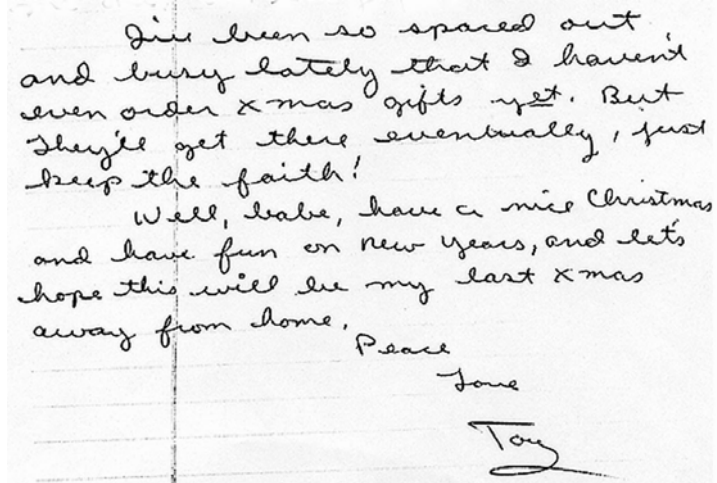 I've been so spaced out
and busy lately that I haven't
even order xmas gifts yet. But
They'll get there eventually, just
keep the faith!
Well, babe, have a nice Christmas
and have fun on new years, and let's
hope this will be my last xmas
away from home.
Peace
Love